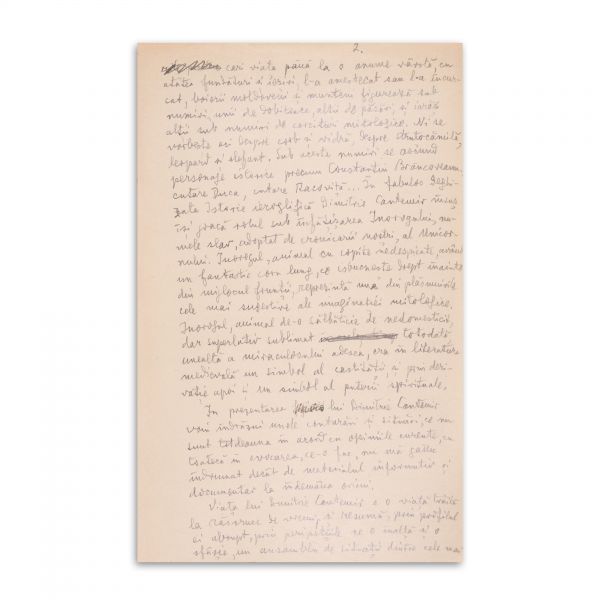 2.
cari viața până la o anume vârstă, cu
atâtea fundături și ieșiri, l-a amestecat sau l-a încur-
cat, boierii moldoveni și munteni figurează sub
numiri, unii de dobitoace, alții de păsări, și iarăș
alții sub numiri de corcituri mitologice. Ni se
vorbește aci despre corb și vidră, despre strutocămilă,
leopard și elefant. Sub aceste numiri se ascund
personaje istorice precum Constantin Brâncoveanu,
cutare Duca, cutare Racoviță... In fabuloasa
Istorie ieroglifică Dimitrie Cantemir însuș
își joacă rolul sub înfățișarea Inorogului, nu-
mele slav, adoptat de cronicarii noștri, al Unicor-
nului. Inorogul, animal cu copite nedespicate, având
un fantastic corn lung, ce isbucnește drept înainte
din mijlocul frunții, reprezintă una din plăsmuirile
cele mai sugestive ale imaginației mitologice.
Inorogul, animal de-o sălbăticie de nedomesticit,
dar superlativ sublimat totodată
unealtă a miraculosului adesea, era în literatura
medievală un simbol al castității și prin deri-
vație apoi și un simbol al puterii spirituale.
In prezentarea lui Dimitrie Cantemir
voiu îndrăsni unele conturări și situări, ce nu
sunt totdeauna în acord cu opiniile curente, cu
toate că în evocarea, ce-o fac, nu mă găsesc
îndrumat decât de materialul informativ și
documentar la îndemâna oricui.
Viața lui Dimitrie Cantemir e o viață trăită
la răscruce de vremi, și resumă, prin profilul
ei abrupt, prin peripețiile ce o înalță și o
sfâșie, un ansamblu de situații dintre cele mai